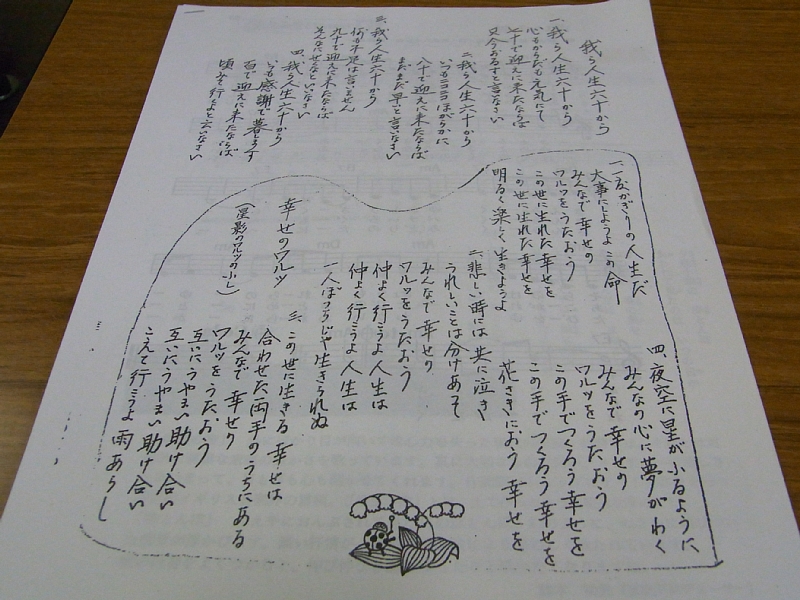 我ら人生六十から
一、我ら人生六十から
心もからだも元気にて
七十で迎えに来たならば
只今おるすと言いなさい
二、我ら人生六十から
いつもニコニコほがらかに
八十で迎えに来たならば
まだまだ早いと言いなさい
三、我ら人生六十から
何の不足は言いません
九十で迎えに来たならば
そんなにせくなといいなさい
四、我ら人生六十から
いつも感謝で暮します
百で迎えに来たならば
頃みて行くよと云いなさい
幸せのワルツ
(星影のワルツのふし)
一、一度かぎりの人生だ
大事にしようよこの命
みんなで幸せの
ワルツをうたおう
この世に生れた幸せを
この世に生れた幸せを
明るく楽しく生きようよ
二、悲しい時には共に泣き
うれしいことは分けあって
みんなで幸せの
ワルツをうたおう
仲よく行こうよ人生は
仲よく行こうよ人生は
一人ぼっちじゃ生きられぬ
三、この世に生きる幸せは
合わせた両手のうちにある
みんなで幸せの
ワルツをうたおう
互いにうやまい助け合い
互いにうやまい助け合い
こえて行こうよ雨あらし
四、夜空に星がふるように
みんなの心に夢がわく
みんなで幸せの
ワルツをうたおう
この手でつくろう幸せを
この手でつくろう幸せを
花さきにおう幸せを